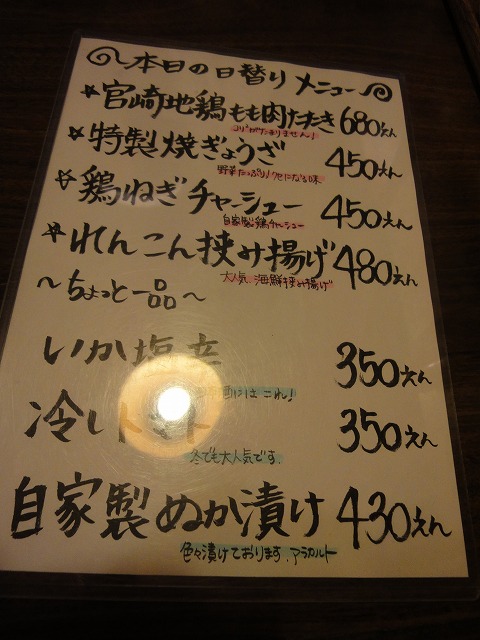 本日の日替りメニュー
☆宮崎地鶏もも肉たたき 680えん
コリコリがたまりません!
☆特製焼ぎょうざ 450えん
野菜たっぷり!クセになる味
☆鶏ねぎチャーシュー 450えん
自家製鶏チャーシュー
☆れんこん挟み揚げ 480えん
大人気、海鮮挟み揚げ
〜ちょっと一品〜
いか塩辛 350えん
酒にはこれ!
冷しトマト 350えん
冬でも大人気です。
自家製ぬか漬け 430えん
色々漬けております、アラカルト